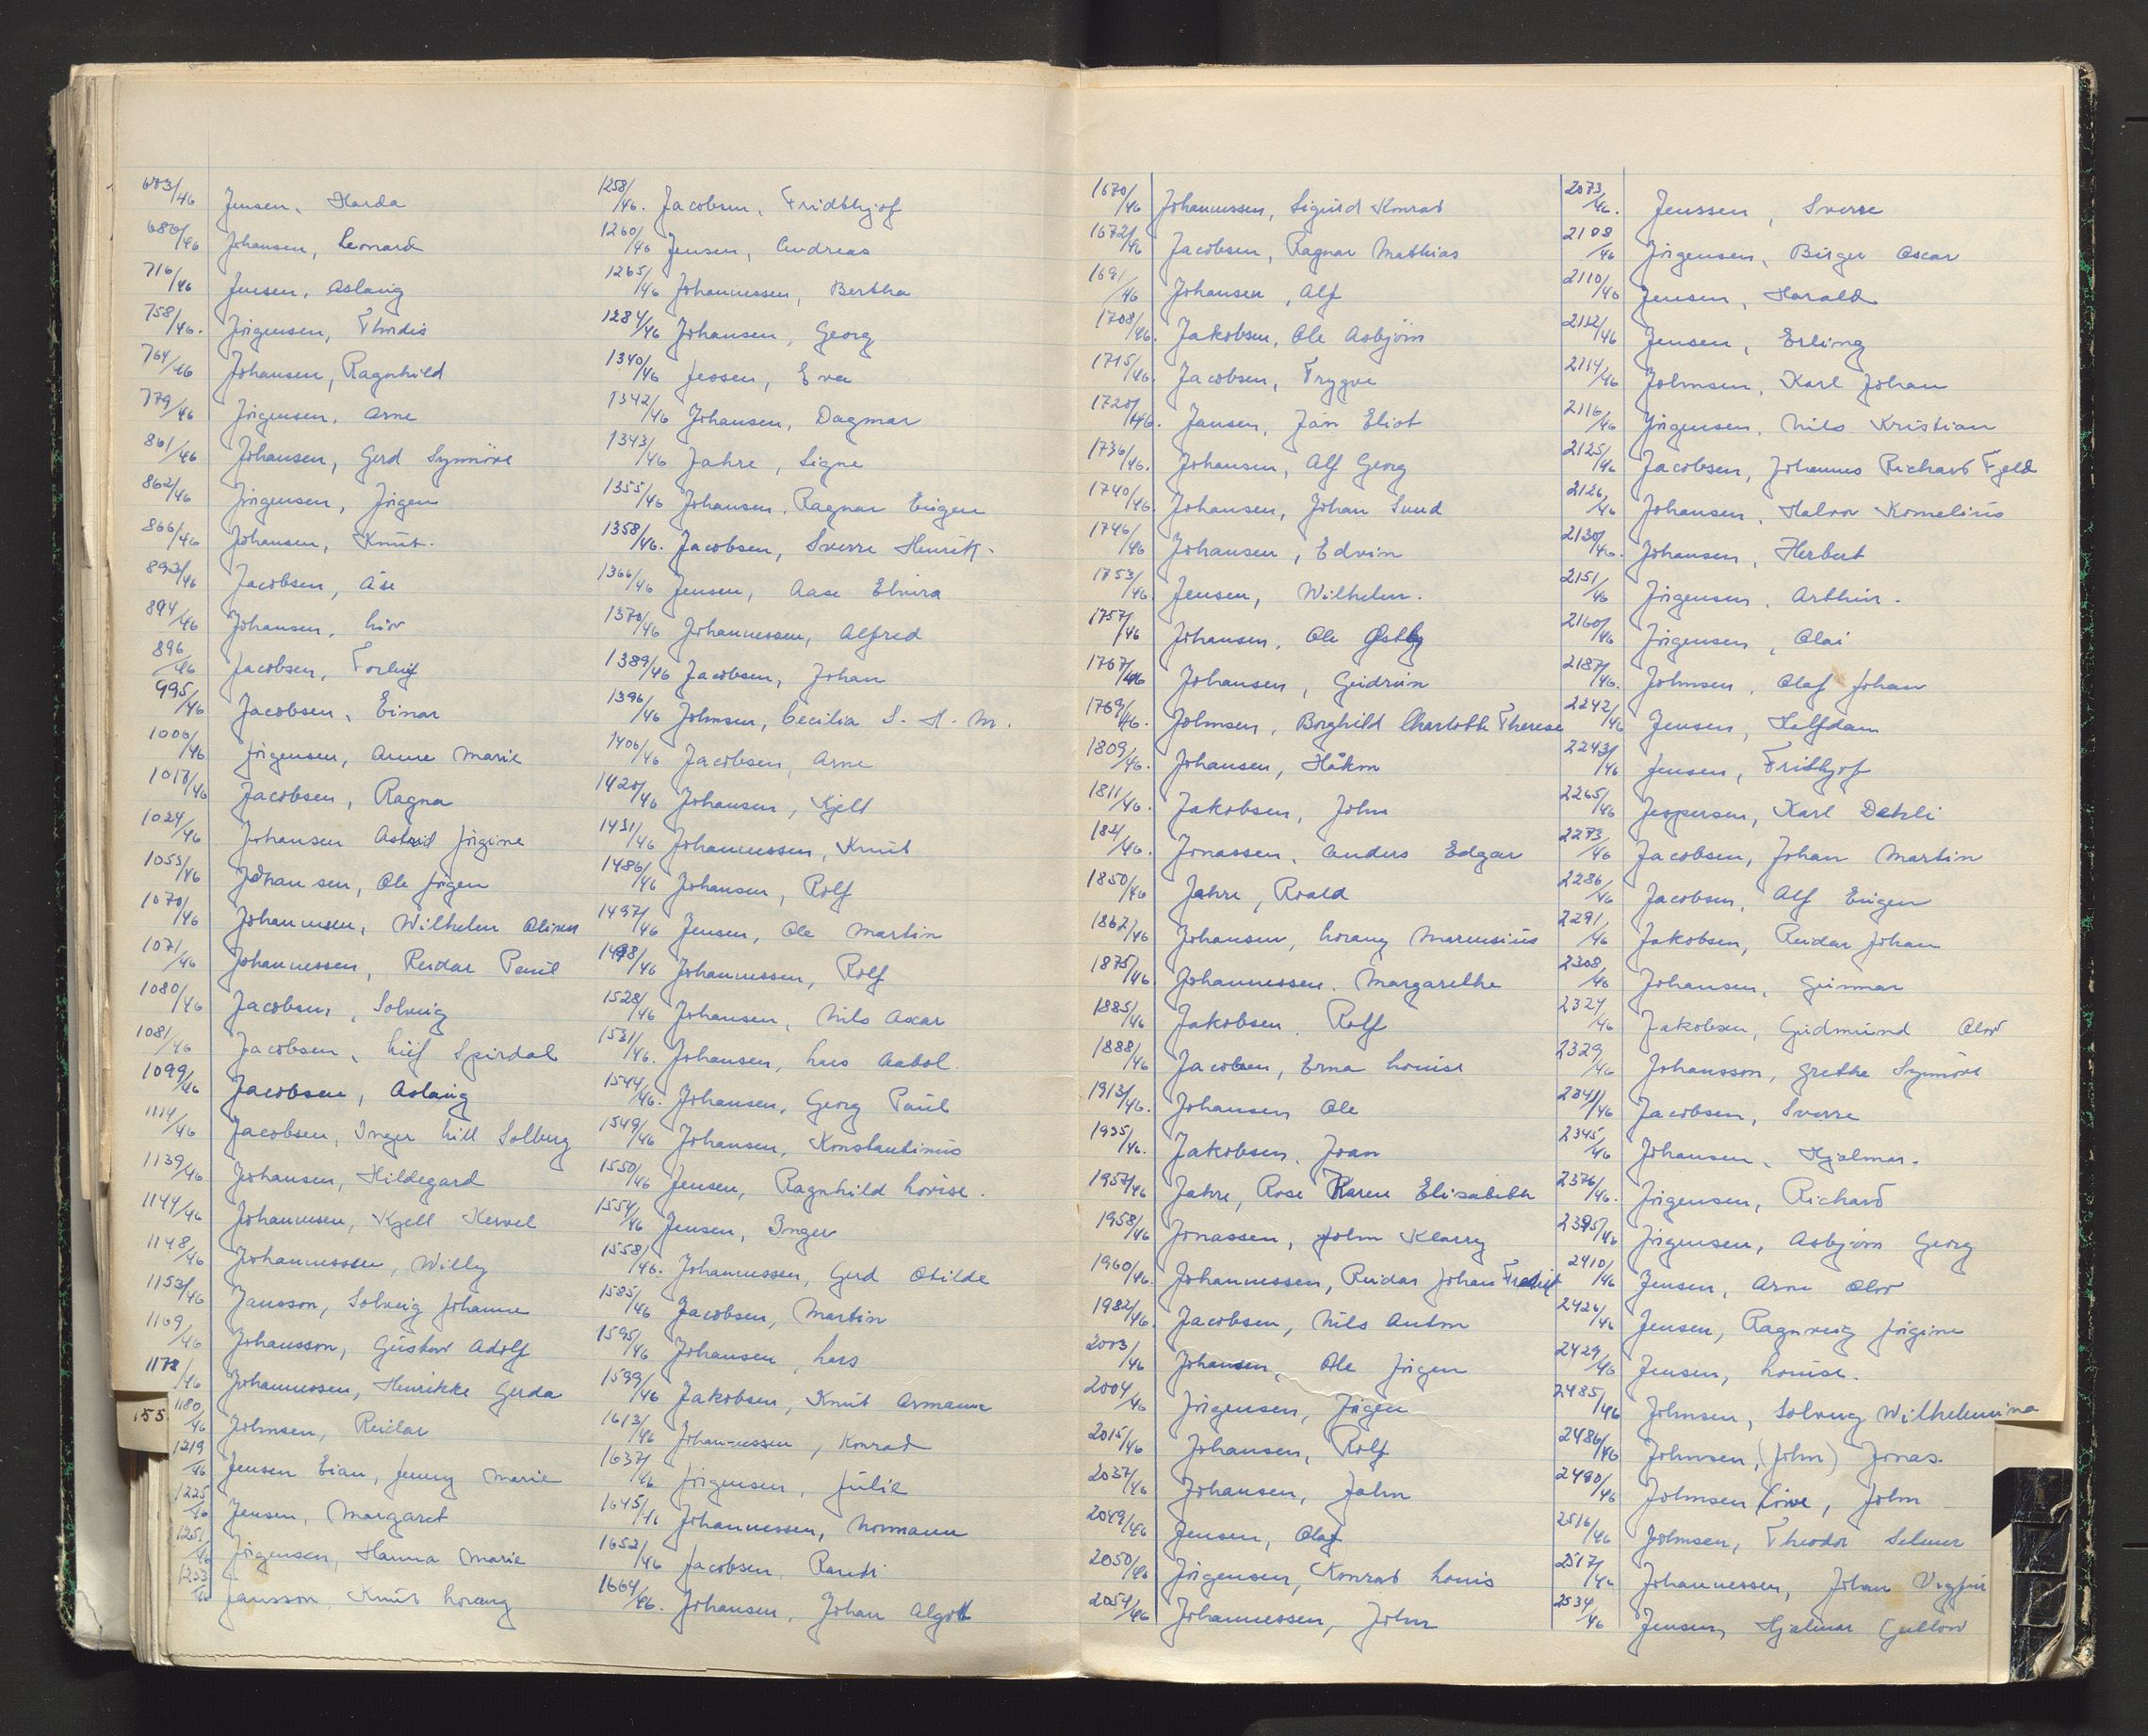 683/46 Jensen, Harda
680/46 Johansen, Leonard
716/46 Jensen, Aslaug
758/46. Jörgensen, Thordis
764/46 Johansen, Ragnhild
779/46 Jörgensen, Arne
861/46 Johansen, Gerd Synnöve
862/46 Jörgensen, Jörgen
866/46 Johansen, Knut.
893/46 Jacobsen, Åse
894/46 Johansen, Liv
896/46 Jacobsen, Torleif
995/46 Jacobsen, Einar
1006/46 Jörgensen, Anne Marie
1017/46 Jacobsen, Ragna
1024/46 Johansen Astrid Jörgine
1053/46 Johansen, Ole Jörgen
1070/46 Johannesen, Wilhelm Oliver
1071/46 Johannessen, Reidar Paul
1080/46 Jacobsen, Solveig
1081/46 Jacobsen, Leif Spirdal
1099/46 Jacobsen, Aslaug
1114/46 Jacobsen, Inger Lill Solberg
1139/46 Johansen, Hildegard
1144/46 Johannesen, Kjell Kervel
1148/46 Johannessen, Willy
1153/46 Jansson, Solveig Johanne
1169/46 Johansson, Gustav Adolf
1172/46 Johannessen, Henrikke Gerda
1180/46 Johnsen, Reidar
1219/46 Jensen Eian, Jenny Marie
1225/46 Jensen, Margaret
1251/46 Jörgensen, Hanna Marie
1253/46 Jansson Knut Lorang
155
1258/46. Jacobsen, Fridthjof
1260/46 Jensen, Andreas
1265/46 Johannessen, Bertha
1284/46 Johansen, Georg
1340/46 Jessen, Eva
1342/46 Johansen, Dagmar
1343/46 Jahre, Signe
1355/46 Johansen, Ragnar Eugen
1358/46. Jacobsen, Sverre Henrik.
1366/46 Jensen, Aase Elvira
1370/46 Johannessen, Alfred
1389/46 Jacobsen, Johan
1396/46 Johnsen, Cecilia S. H. M.
1406/46 Jacobsen, Arne
1420/46 Johansen, Kjell
1431/46 Johannessen, Knut
1486/46 Johansen, Rolf
1497/46 Jensen, Ole Martin
1498/46 Johannessen, Rolf
1528/46 Johansen, Nils Oscar
1531/46. Johansen, Lars Aabol
1544/46. Johansen, Georg Paul
1549/46 Johansen, Konstantinus
1550/46 Jensen, Ragnhild Lovise.
1554/46 Jensen, Inger
1558/46. Johannessen, Gerd Otilde
1585/46 Jacobsen, Martin
1595/46 Johansen, Lars
1599/46 Jakobsen, Knut Armann
1613/46 Johannessen, Konrad
1637/46 Jörgensen, Julie
1645/46 Johannessen, Normann
1652/46 Jacobsen, Randi
1664/46. Johansen, Johan Algott
1670/46 Johannessen, Sigurd Konrad
1672/46 Jacobsen, Ragnar Mathias
1691/46 Johansen, Alf
1708/46. Jakobsen, Ole Asbjörn
1715/46. Jacobsen, Trygve
1720/46. Jansen, Jan Eliot
1736/46. Johansen, Alf Georg
1740/46 Johansen, Johan Sund
1746/46 Johansen, Edvin
1753/46 Jensen, Wilhelm.
1757/46 Johansen, Ole Østby
1767/46 Johansen, Gudrun
1769/46. Johnsen, Borghild Charlotte Therese
1809/46. Johansen, Håkon
1811/46. Jakobsen, John
1821/46. Jonassen, Anders Edgar
1850/46 Jahre, Roald
1862/46 Johansen, Lorang Marensius
1875/46 Johannessen. Margarethe
1885/46 Jakobsen. Rolf
1888/46 Jacobsen, Erna Louise
1913/46. Johansen Ole
1935/46. Jakobsen, Joan
1957/46 Jahre, Rose Karen Elisabeth
1958/46 Jonassen, John Klarry
1960/46. Johannessen, Reidar Johan Fredrik
1982/46. Jacobsen, Nils Anton
2003/46 Johansen, Ole Jörgen
2004/46 Jörgensen, Jörgen
2015/46 Johansen, Rolf
2037/46 Johansen, John
2049/46 Jensen, Olaf
2050/46 Jörgensen, Konrad Louis
2054/46 Johannessen, John
2073/46. Jenssen, Sverre
2108/46 Jörgensen, Birger Oscar
2110/46 Jensen, Harald
2112/46 Jensen, Erling
2114/46 Johnsen, Karl Johan
2116/46 Jörgensen, Nils Kristian
2125/46 Jacobsen, Johannes Richard Fjeld
2126/46 Johansen, Halvor Kornelius
2130/46. Johansen, Herbert
2151/46 Jörgensen, Arthur.
2160/46 Jörgensen, Olai
2187/46. Johnsen, Olaf Johan
2242/46 Jensen, Halfdan
2243/46 Jensen, Frithjof
2265/46 Jespersen, Karl Dahli
2273/46 Jacobsen, Johan Martin
2286/46 Jacobsen, Alf Eugen
2291/46 Jakobsen, Reidar Johan
2308/46 Johansen, Gunnar
2327/46 Jakobsen, Gudmund Olav
2329/46 Johansson, Grethe Synnöve
2341/46 Jacobsen, Sverre
2345/46 Johansen, Hjalmar.
2376/46. Jörgensen, Richard
2395/46 Jörgensen, Asbjörn Georg
2410/46 Jensen, Arne Olav
2426/46 Jensen, Ragnveig Jörgine
2429/46 Jensen, Louise.
2485/46 Johnsen, Solveig Wilhelmina
2486/46 Johnsen, (John) Jonas.
2490/46 Johnsen Löve, John
2516/46 Johnsen, Theodor Selmer
2517/46 Johannessen, Johan
2534/46 Jensen, Hjalmar